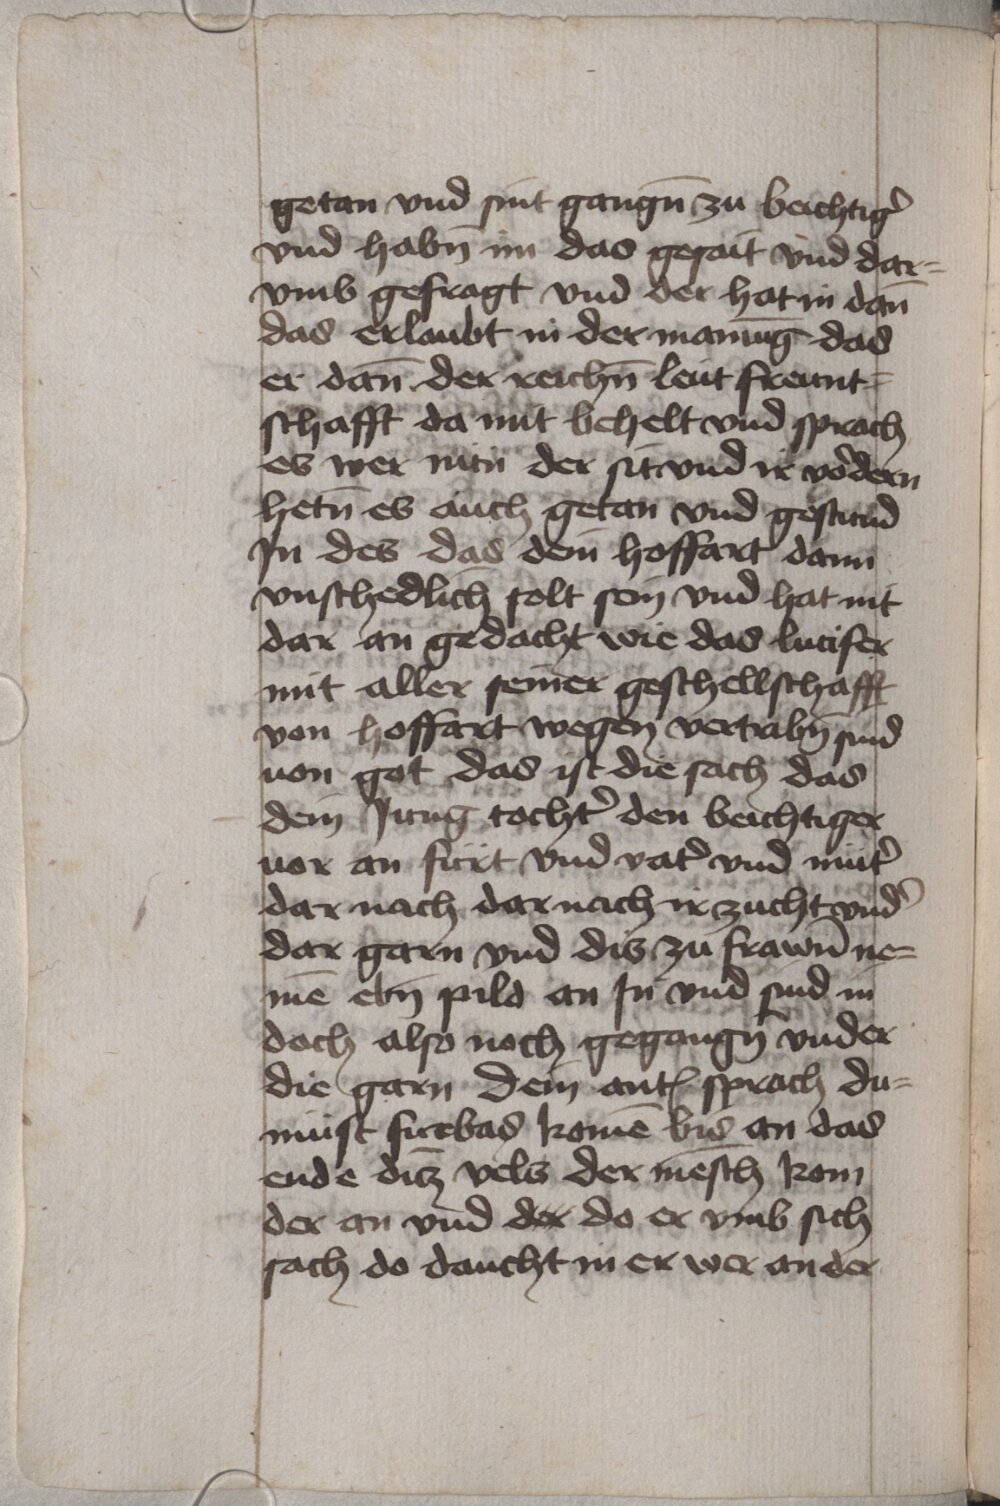 getan vnd sint gangn̄ zu beichtig̉
vnd habn̄ im das gesait vnd dar=
vmb gefragt vnd der hat in dan̄
das erlaubt in der manūg das
er dan̄ der reichn̄ leüt freunt=
schafft da mit behelt vnd sprach
es wer nün der sit vnd ir vo̍dern
hetn̄ es auch getan vnd gestund
In des das dein hoffart dann
vnschedlich solt sein vnd hat nit
dar an gedacht wie das lucifer
mit aller seiner geschellschafft
von hoffart wegen vertribn̄ sind
uon got das ist die sach das
dein Jung tocht̉ den beichtiger
uor an fürt vnd vat̉ vnd müt̉
dar nach dar nach ir zucht vnd̉
dar garn vnd dis zu frawn̄ ne=
mē ebn̄ pild an In vnd sind in
doch also noch gegangn̄ vnder
die garn Dein ant̉ sprach du=
müst fürbas komē bis an das
ende diz vels der mēsch kom
der an vnd der do er vmb sich
sach do daucht in er wer an der